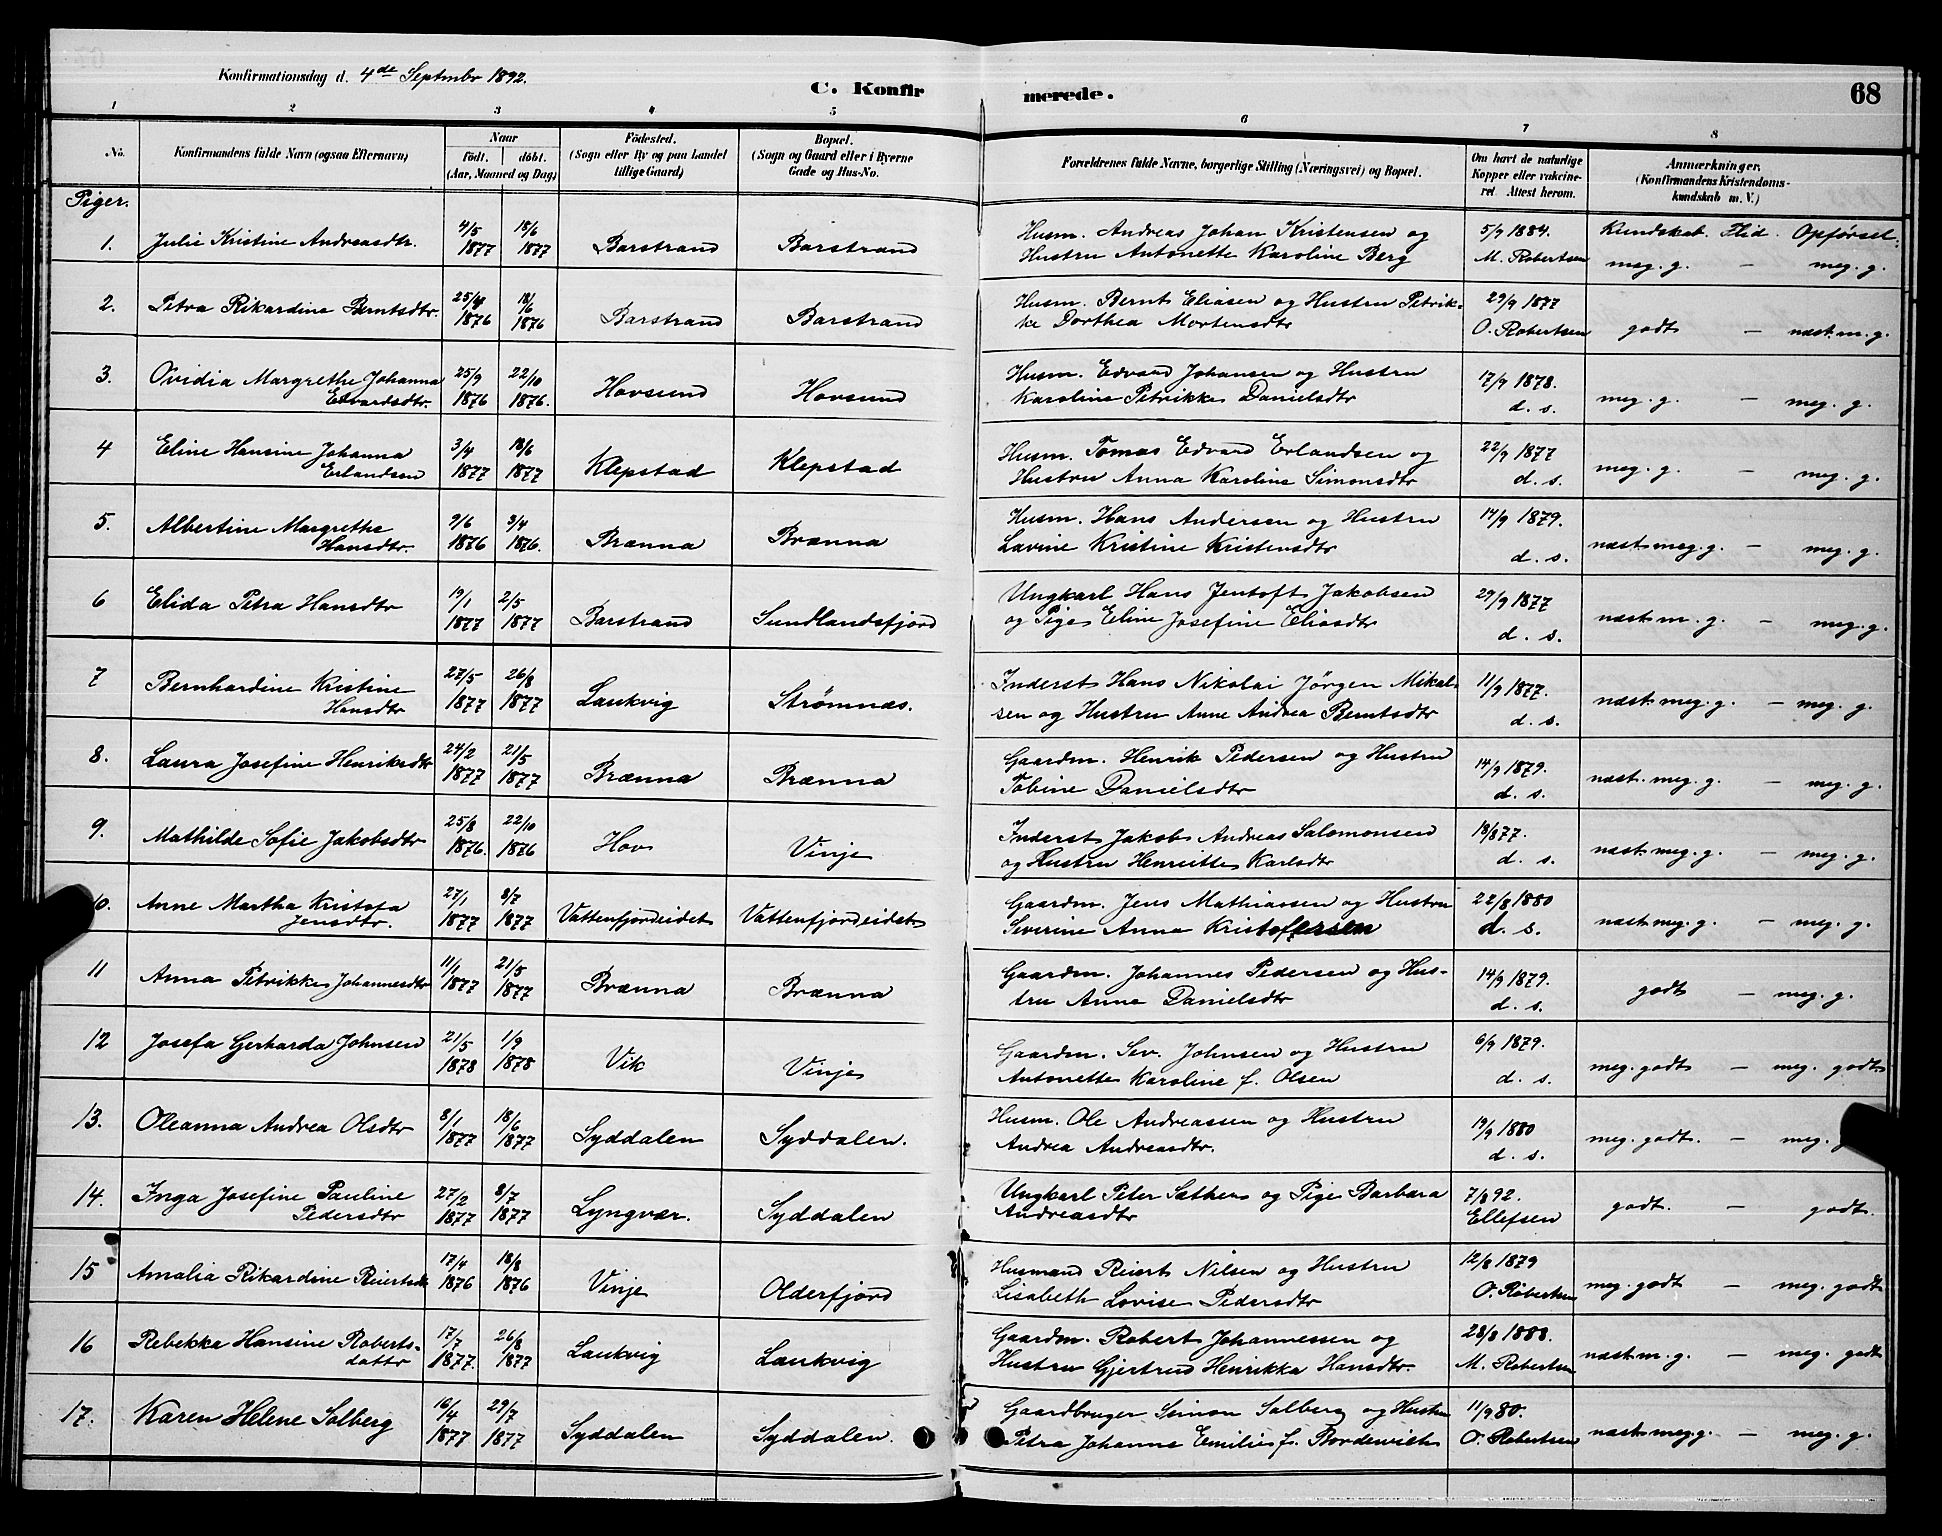 Konfirmationsdag d. 4de Septmbr 1892.
C. Konfirmerede.
68
1 2 3 4 5 6 7 8
No.
Konfirmandens fulde Navn (ogsaa Efternavn)
Naar
födt. döbt.
(Aar, Maaned og Dag)
Födested.
(Sogn eller By og paa Landet
tillige Gaard)
Bopæl.
(Sogn og Gaard eller i Byerne
Gade og Hus-No.
Forældrenes fulde Navne, borgerlige Stilling (Næringsvei) og Bopæl.
Om havt de naturlige
Kopper eller vakcine-
ret Attest herom.
Anmærkninger.
(Konfirmandens Kristendoms-
kundskab m. V.)
Piger.
1. Julie Kristine Andreasdtr. 4/5 1877 18/6 1877 Barstrand Barstrand
Husm. Andreas Johan Kristensen og
Hustru Antonette Karoline Berg
5/9 1884. M. Robertsen
Kundskab. Flid. Opførsel.
meg. g. — meg. g.
2. Petra Rikardine Berntsdtr. 1876 18/6 1876 Barstrand Barstrand
Husm. Bernt Eliasen og Hustru Petrik-
ke Dorthea Mortensdtr
29/9 1877 O. Robertsen
godt — næst. m. g.
3. Ovidia Margrethe Johanna
Edvardsdtr. 25/9 1876 22/10 1876. Hovsund Hovsund
Husm. Edvard Johansen og Hustru
Karoline Petrikke Danielsdtr
17/9 1878. d. s.
meg. g. — meg. g.
4 Eline Hansine Johanna
Erlandsen 3/4 1877 18/6 1877 Klepstad Klepstad
Husm. Tomas Edvard Erlandsen og
Hustru Anna Karoline Simonsdtr
22/9 1877 d. s.
meg. g. — meg. g.
5. Albertine Margrethe
Hansdtr. 9/6 1876 3/4 1876. Brænna Brænna
Husm. Hans Andersen og Hustru
Lavine Kristine Kristensdtr
14/9 1879. d. s.
næst. meg. g. — meg. g.
6 Elida Petra Hansdtr 19/1 1877 2/5 1877 Barstrand Sundlandsfjord
Ungkarl Hans Jentoft Jakobsen
og Pige Eline Josefine Eliasdtr
29/9 1877 d. s.
næst m. g. — meg. g.
7 Bernhardine Kristine
Hansdtr 27/5 1877 26/8 1877 Laukvig Strømnæs.
Inderst Hans Nikolai Jörgen Mikal-
sen og Hustru Anne Andrea Berntsdtr
11/9 1877. d. s.
næst meg. g. — meg. g.
8. Laura Josefine Henriksdtr 24/2 1877 21/5 1877 Brænna Brænna
Gaardm. Henrik Pedersen og Hustru
Tobine Danielsdtr
14/9 1879. d. s.
næst. meg. g. — meg. g.
9. Mathilde Sofie Jakobsdtr 25/8 1876. 22/10 1876 Hov Vinje
Inderst Jakob Andreas Salomonsen
og Hustru Henriette Karlsdtr
18/8 77. d. s.
næst. meg. g. — meg. g.
10. Anne Martha Kristofa
Jensdtr. 27/1 1877 8/7 1877 Vattenfjordeidet Vattenfjordeidet
Gaardm. Jens Mathiassen og Hustru
Severine Anna Kristofersen
22/8 1880 d. s.
næst meg. g. — meg. g.
11 Anna Petrikke Johannesdtr 11/1 1877 21/5 1877 Brænna Brænna
Gaardm. Johannes Pedersen og Hus-
tru Anne Danielsdtr
14/9 1879. d. s.
godt — meg. g.
12 Josefa Gerharda Johnsen 21/5 1878 1/9 1878 Vik Vinje
Gaardm. Sev. Johnsen og Hustru
Antonette Karoline f. Olsen
6/9 1879. d. s.
meg. godt — meg. godt
13. Oleanna Andrea Olsdtr 8/1 1877 18/6 1877 Syddalen Syddalen.
Husm. Ole Andreassen og Hustru
Andrea Andreasdtr.
19/9 1880 d. s.
meg. godt. — meg.
14. Inga Josefine Pauline
Pedersdtr 27/2 1877 8/7 1877 Lyngvær. Syddalen
Ungkarl Peter Sæther og Pige Barbara
Andreasdtr
7/8 92. Ellefsen
godt. — godt.
15 Amalia Rikardine Reiertsdtr 17/4 1876 18/8 1876 Vinje Olderfjord
Husmand Reiert Nilsen og Hustru
Lisabeth Lovise Pedersdtr
12/8 1879 O. Robertsen
meg. godt — meg. godt
16 Rebekka Hansine Roberts-
datter 17/7 1877. 26/8 1877 Laukvig Laukvig
Gaardm. Robert Johannessen og
Hustru Gjertrud Henrikka Hansdtr.
28/8 1888. M. Robertsen
næst m. g. — meg. godt
17. Karen Helene Solberg 16/4 1877 29/7 1877 Syddalen Syddalen.
Gaardbruger Simon Solberg og Hustru
Petra Johanne Emilie f. Bordewich
11/9 80. O. Robertsen
næst meg. g. — meg. g.